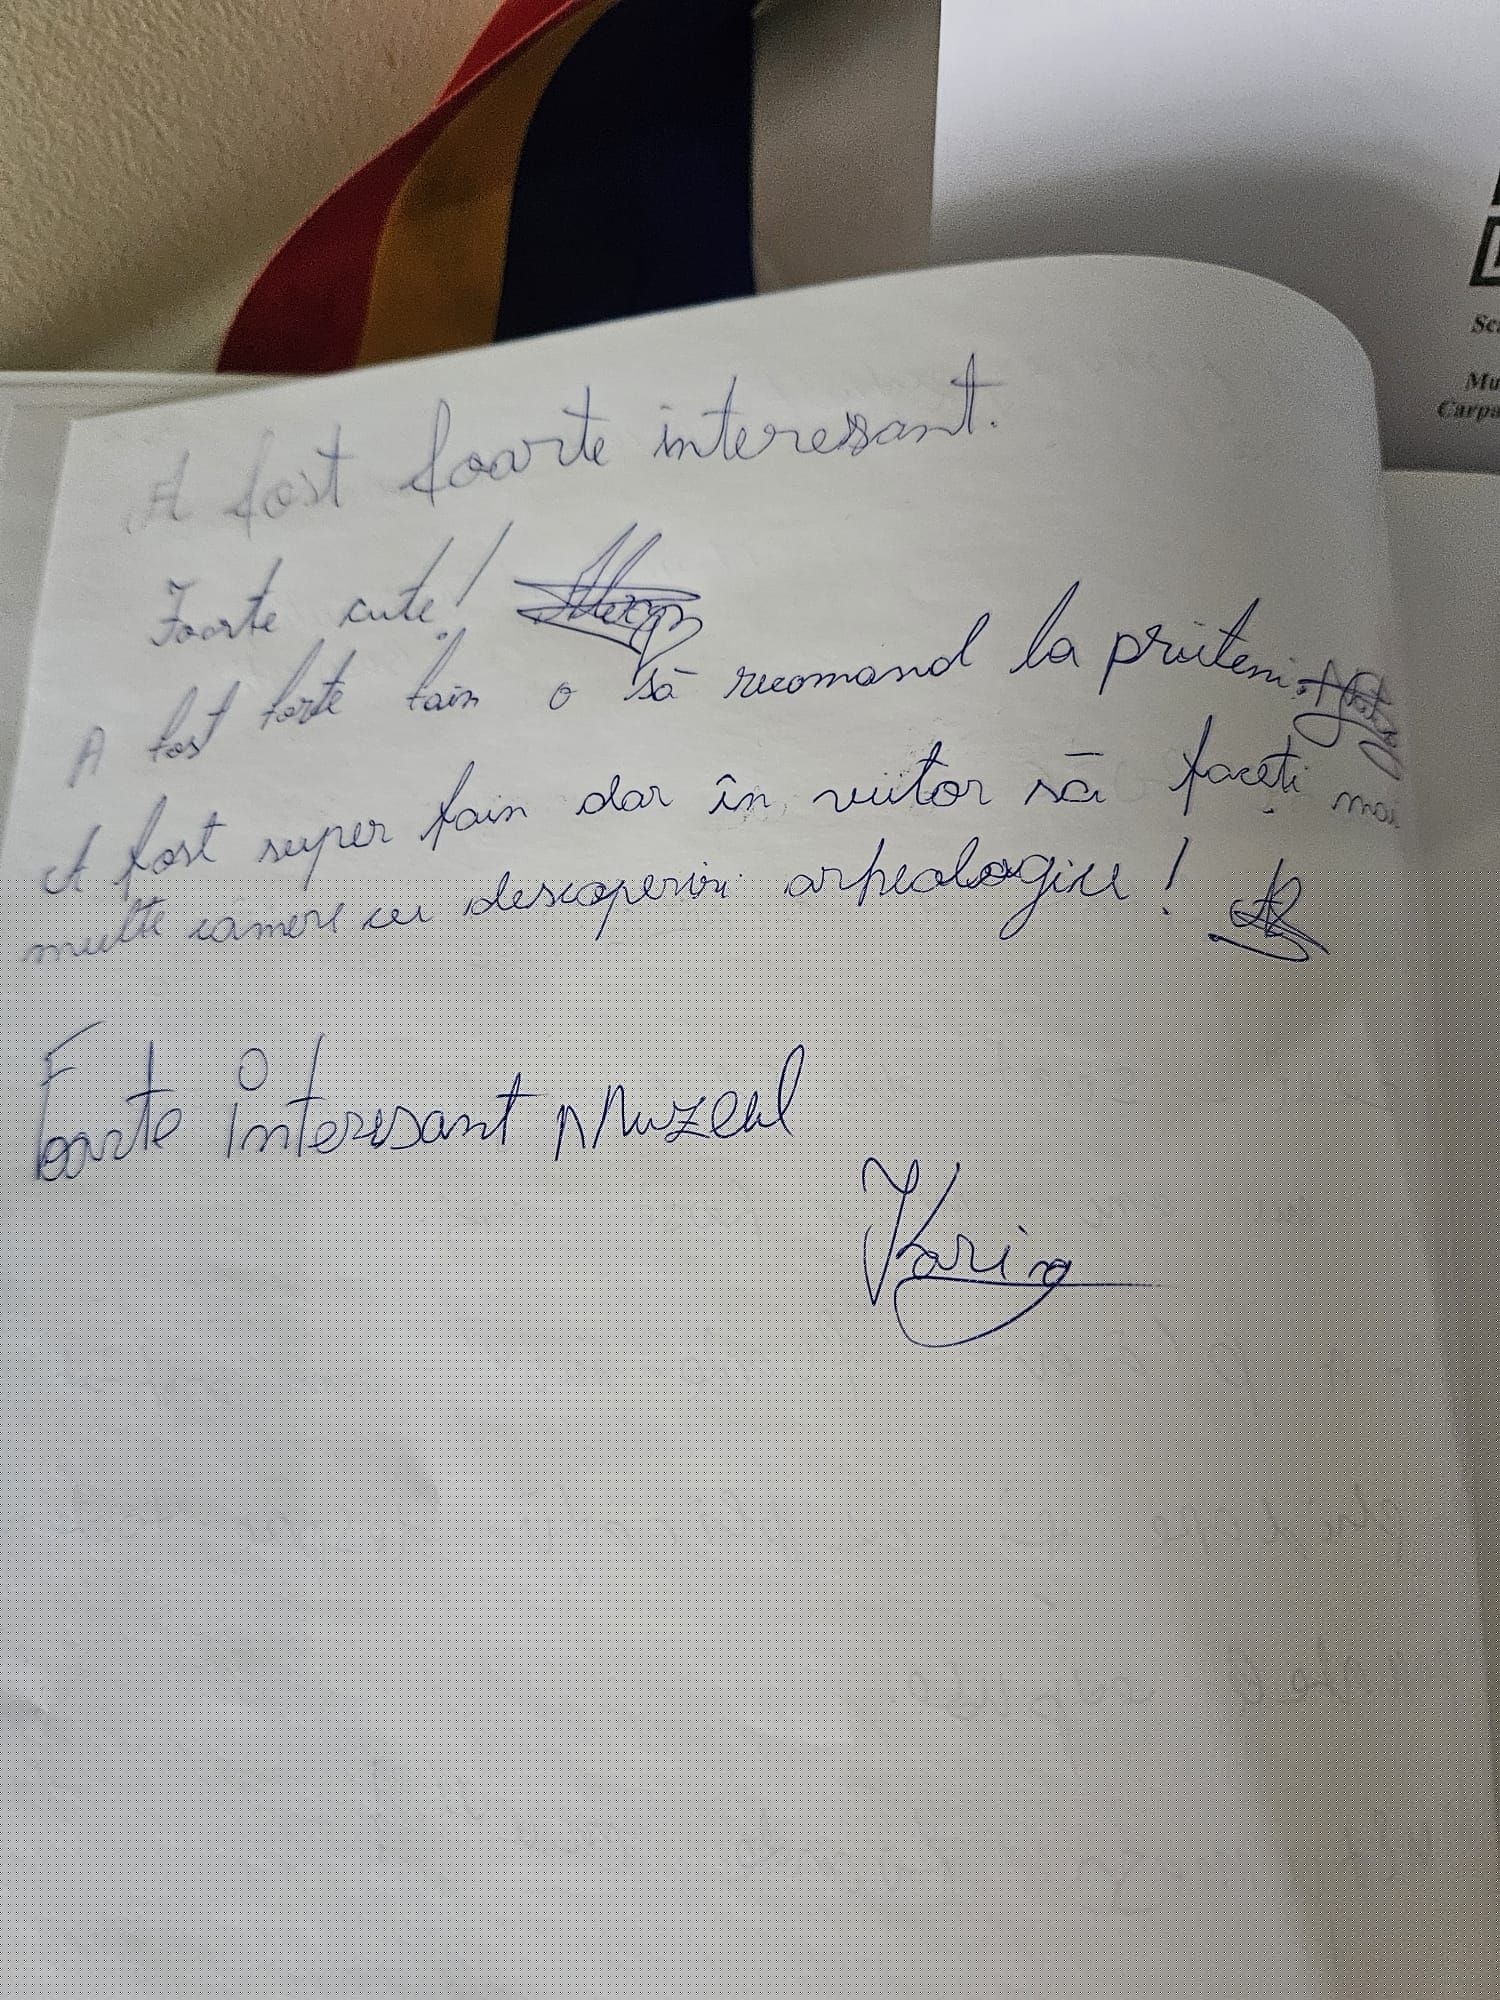 Sc
Mu
Carpa
A fost foarte interesant.
Foarte cute!
A fost forte fain o să recomand la priiteni.
A fost super fain dar în viitor să faceți mai
multe camere cu descoperiri arheologice!
Foarte interesant Muzeul
Karina